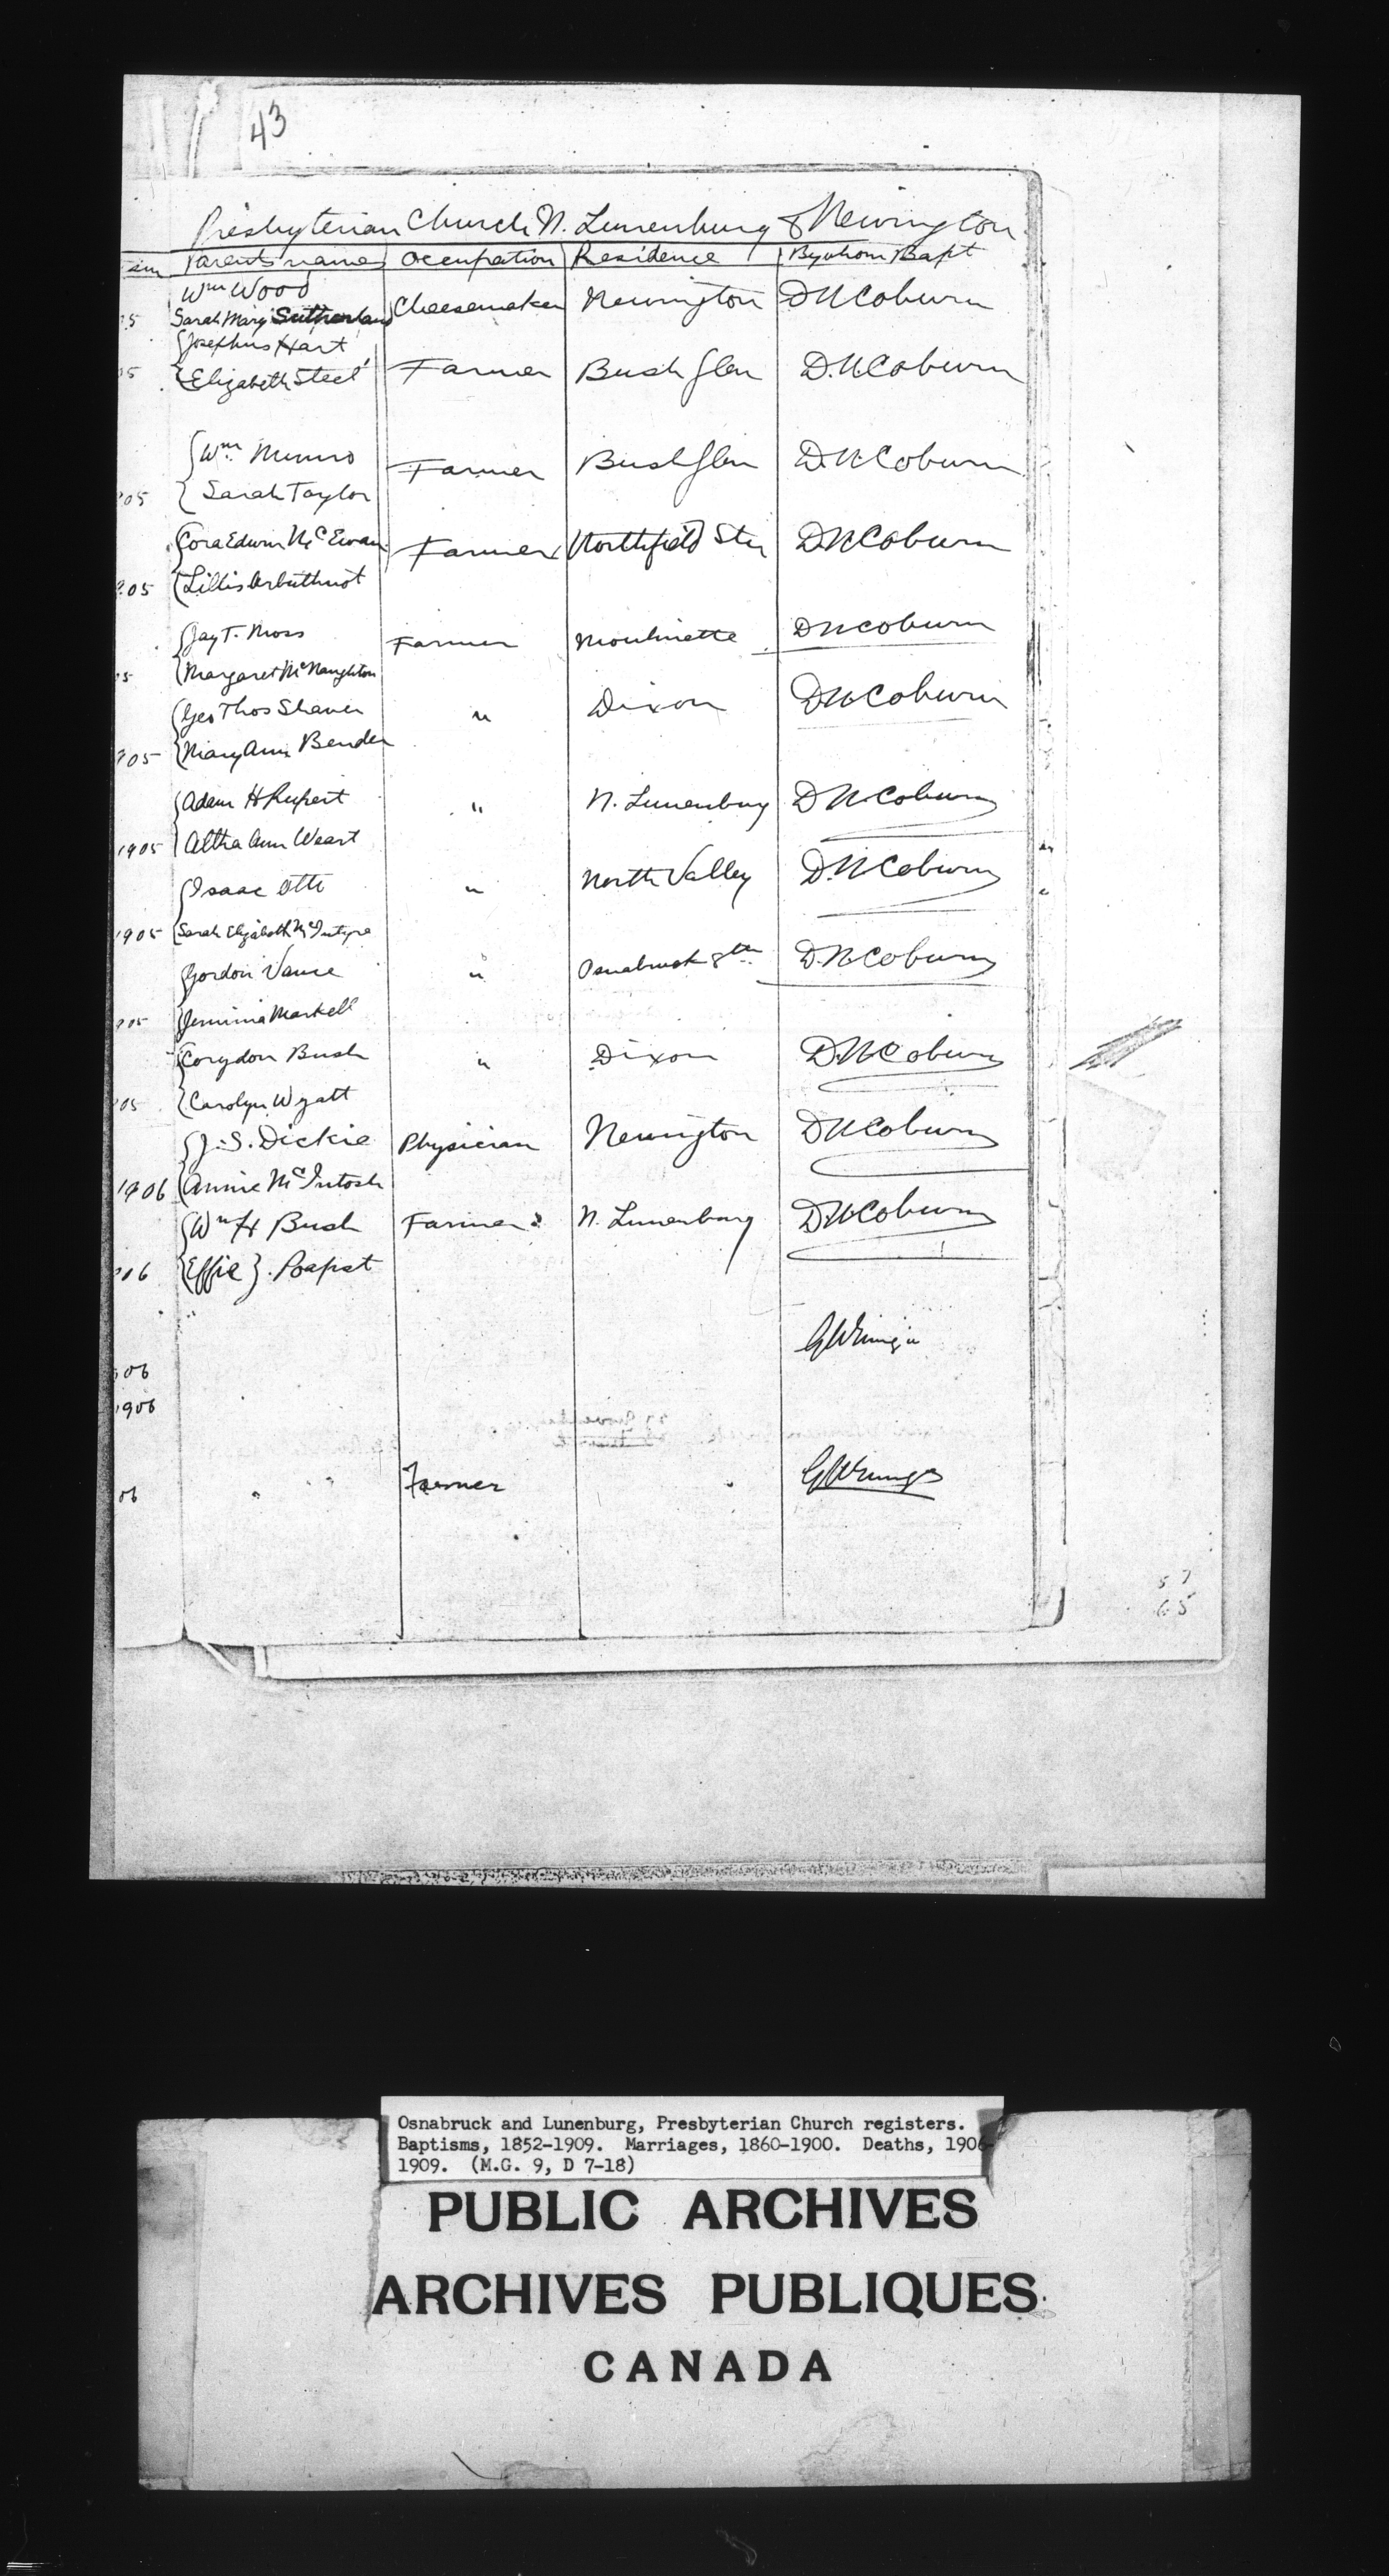 43
Presbyterian Church N. Lunenburg & Newington
ism Parents names Occupation Residence By whom Bapt
Wm Wood
5 Sarah Mary Sutherland Cheesemaker Newington D N Coburn
Josephus Hart
05 Elizabeth Steel Farmer Bush Glen D. N Coburn
Wm. Munro
05 Sarah Taylor Farmer Bush Glen D. N Coburn
Edwin McEwan Farmer Northfield Stn D. N Coburn
905 Lillis Arbuthnot
Jay T. Moss Farmer Moulinette D N Coburn
5 Margaret McNaughton
Geo Thos Shaver " Dixon D N Coburn
905 Mary Ann Bender
Adam H Rupert " N. Lunenburg D N. Coburn
1905 Altha Ann Weart
Isaac Otto " North Valley D. N Coburn
1905 Sarah Elizabeth McIntyre
Gordon Vance " Osnabruck 8th D. N. Coburn
905 Jemima Markell
Corydon Bush " Dixon D. N Coburn
05 Carolyn Wyatt
J. S. Dickie Physician Newington D N Coburn
1906 Annie McIntosh
Wm H Bush Farmer N. Lunenburg D. N Coburn
906 Effie } Papst
06
1906
06 " " " Farmer "
57
65
Osnabruck and Lunenburg, Presbyterian Church registers.
Baptisms, 1852-1909. Marriages, 1860-1900. Deaths, 1906-
1909. (M.G. 9, D 7-18)
PUBLIC ARCHIVES
ARCHIVES PUBLIQUES
CANADA